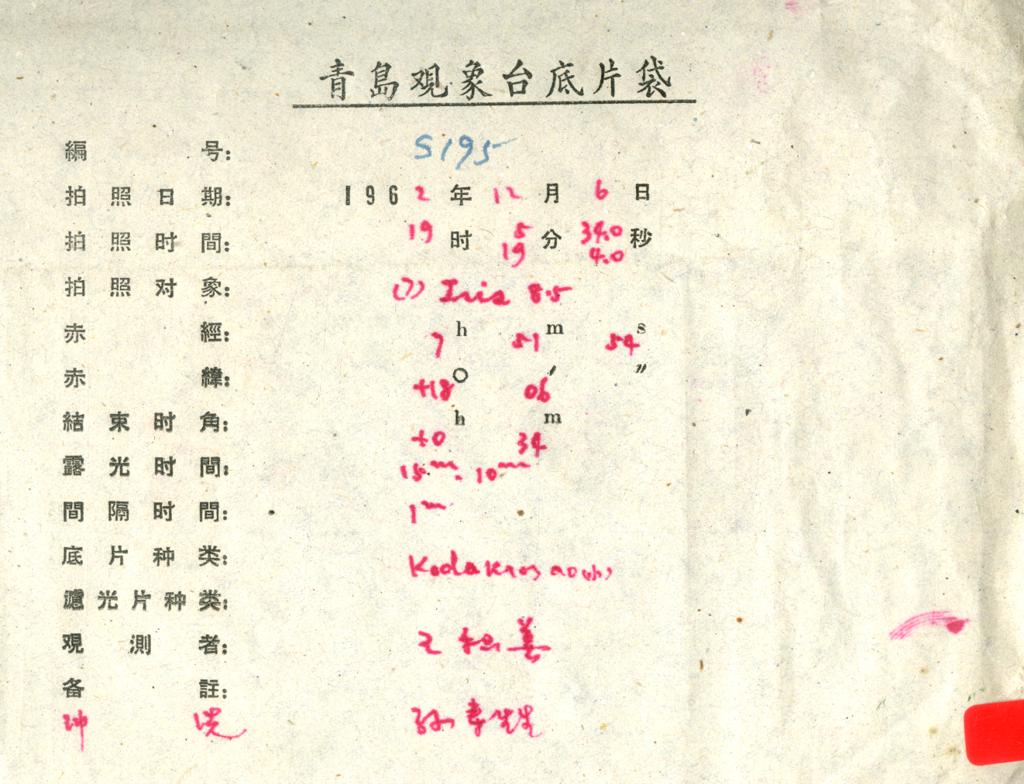 青島观象台底片袋
編号: S195
拍照日期: 1962年12月6日
拍照时間: 19时5分34.0秒
19 4.0
拍照对象: (7) Iris 8.5
赤經: 7h 51m 54s
赤緯: +18° 06′ ″
結束时角: +0h 34m
露光时間: 15m. 10m
間隔时間: 1m
底片种类: Kodak
濾光片种类:
观測者: 王 善
备註:
冲洗 孙寿